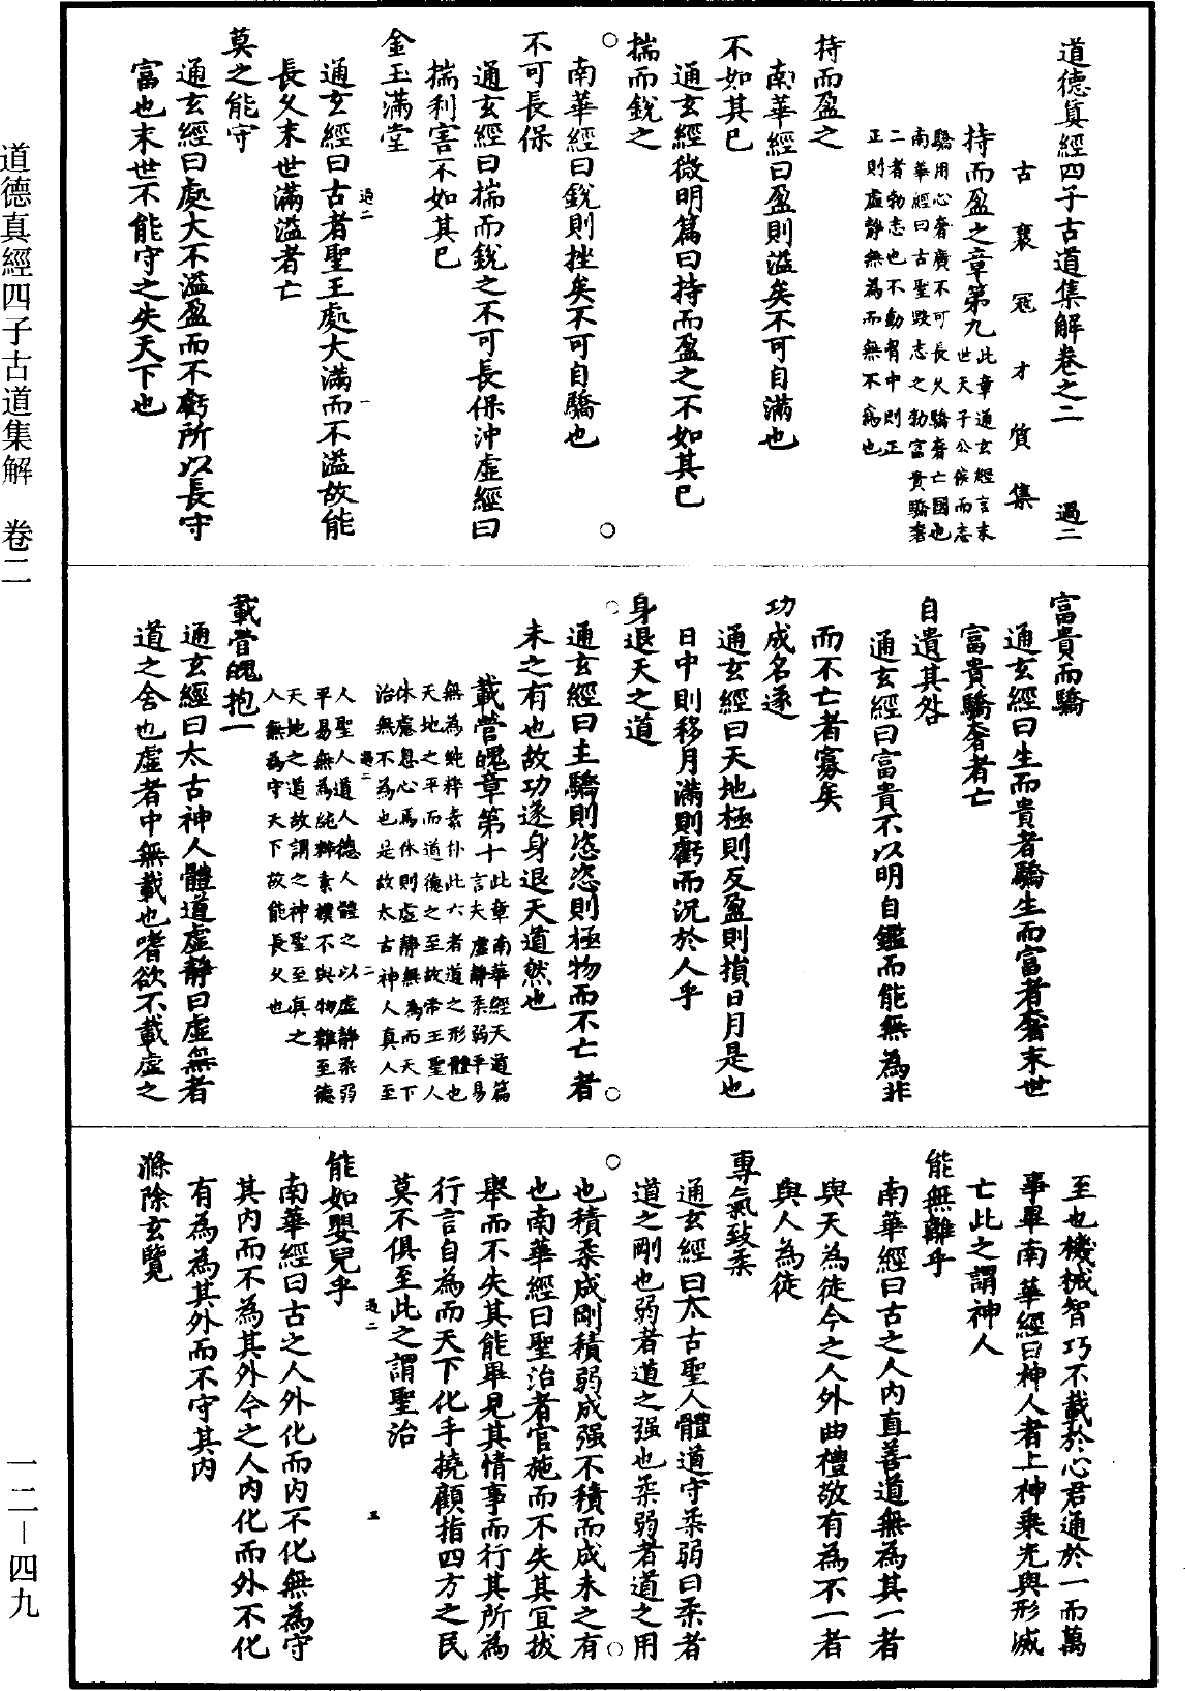 道德真經四子古道集解卷之二 過二
古襄寇才質集
持而盈之章第九
此章通玄經言末
世天子公侯而志
驕用心奢廣不可長久驕奢亡國也
南華經曰古聖毀志之勃富貴驕奢
二者勃志也不動胷中則正
正則虛靜無為而無不為也
持而盈之
南華經曰盈則溢矣不可自滿也
不如其已
通玄經微明篇曰持而盈之不如其已
揣而銳之
南華經曰銳則挫矣不可自驕也
不可長保
通玄經曰揣而銳之不可長保沖虛經曰
揣利害不如其已
金玉滿堂
通玄經曰古者聖王處大滿而不溢故能
長久末世滿溢者亡
莫之能守
通玄經曰處大不溢盈而不虧所以長守
富也末世不能守之失天下也
過二 一
富貴而驕
通玄經曰生而貴者驕生而富者奢末世
富貴驕奢者亡
自遺其咎
通玄經曰富貴不以明自鑑而能無為非
而不亡者寡矣
功成名遂
通玄經曰天地極則反盈則損日月是也
日中則移月滿則虧而況於人乎
身退天之道
通玄經曰主驕則恣恣則極物而不亡者
未之有也故功遂身退天道然也
載營魄章第十
此章南華經天道篇
言夫虛靜柔弱平易
無為純粹素朴此六者道之形體也
天地之平而道德之至故帝王聖人
休慮息心焉休則虛靜無為而天下
治無不為也是故太古神人真人至
人聖人道人德人體之以虛靜柔弱
平易無為純粹素樸不與物雜至德
天地之道故謂之神聖至真之
人無為守天下故能長久也
過二 二
載營魄抱一
通玄經曰太古神人體道虛靜曰虛無者
道之舍也虛者中無載也嗜欲不載虛之
至也機械智巧不載於心君通於一而萬
事畢南華經曰神人者上神乘光與形滅
亡此之謂神人
能無離乎
南華經曰古之人內直善道無為其一者
與天為徒今之人外曲禮敬有為不一者
與人為徒
專氣致柔
通玄經曰太古聖人體道守柔弱曰柔者
道之剛也弱者道之强也柔弱者道之用
也積柔成剛積弱成强不積而成未之有
也南華經曰聖治者官施而不失其宜拔
舉而不失其能畢見其情事而行其所為
行言自為而天下化手撓顧指四方之民
莫不俱至此之謂聖治
過二 三
能如嬰兒乎
南華經曰古之人外化而內不化無為守
其內而不為其外今之人內化而外不化
有為為其外而不守其內
滌除玄覽
道德真經四子古道集解 卷二
一二—四九